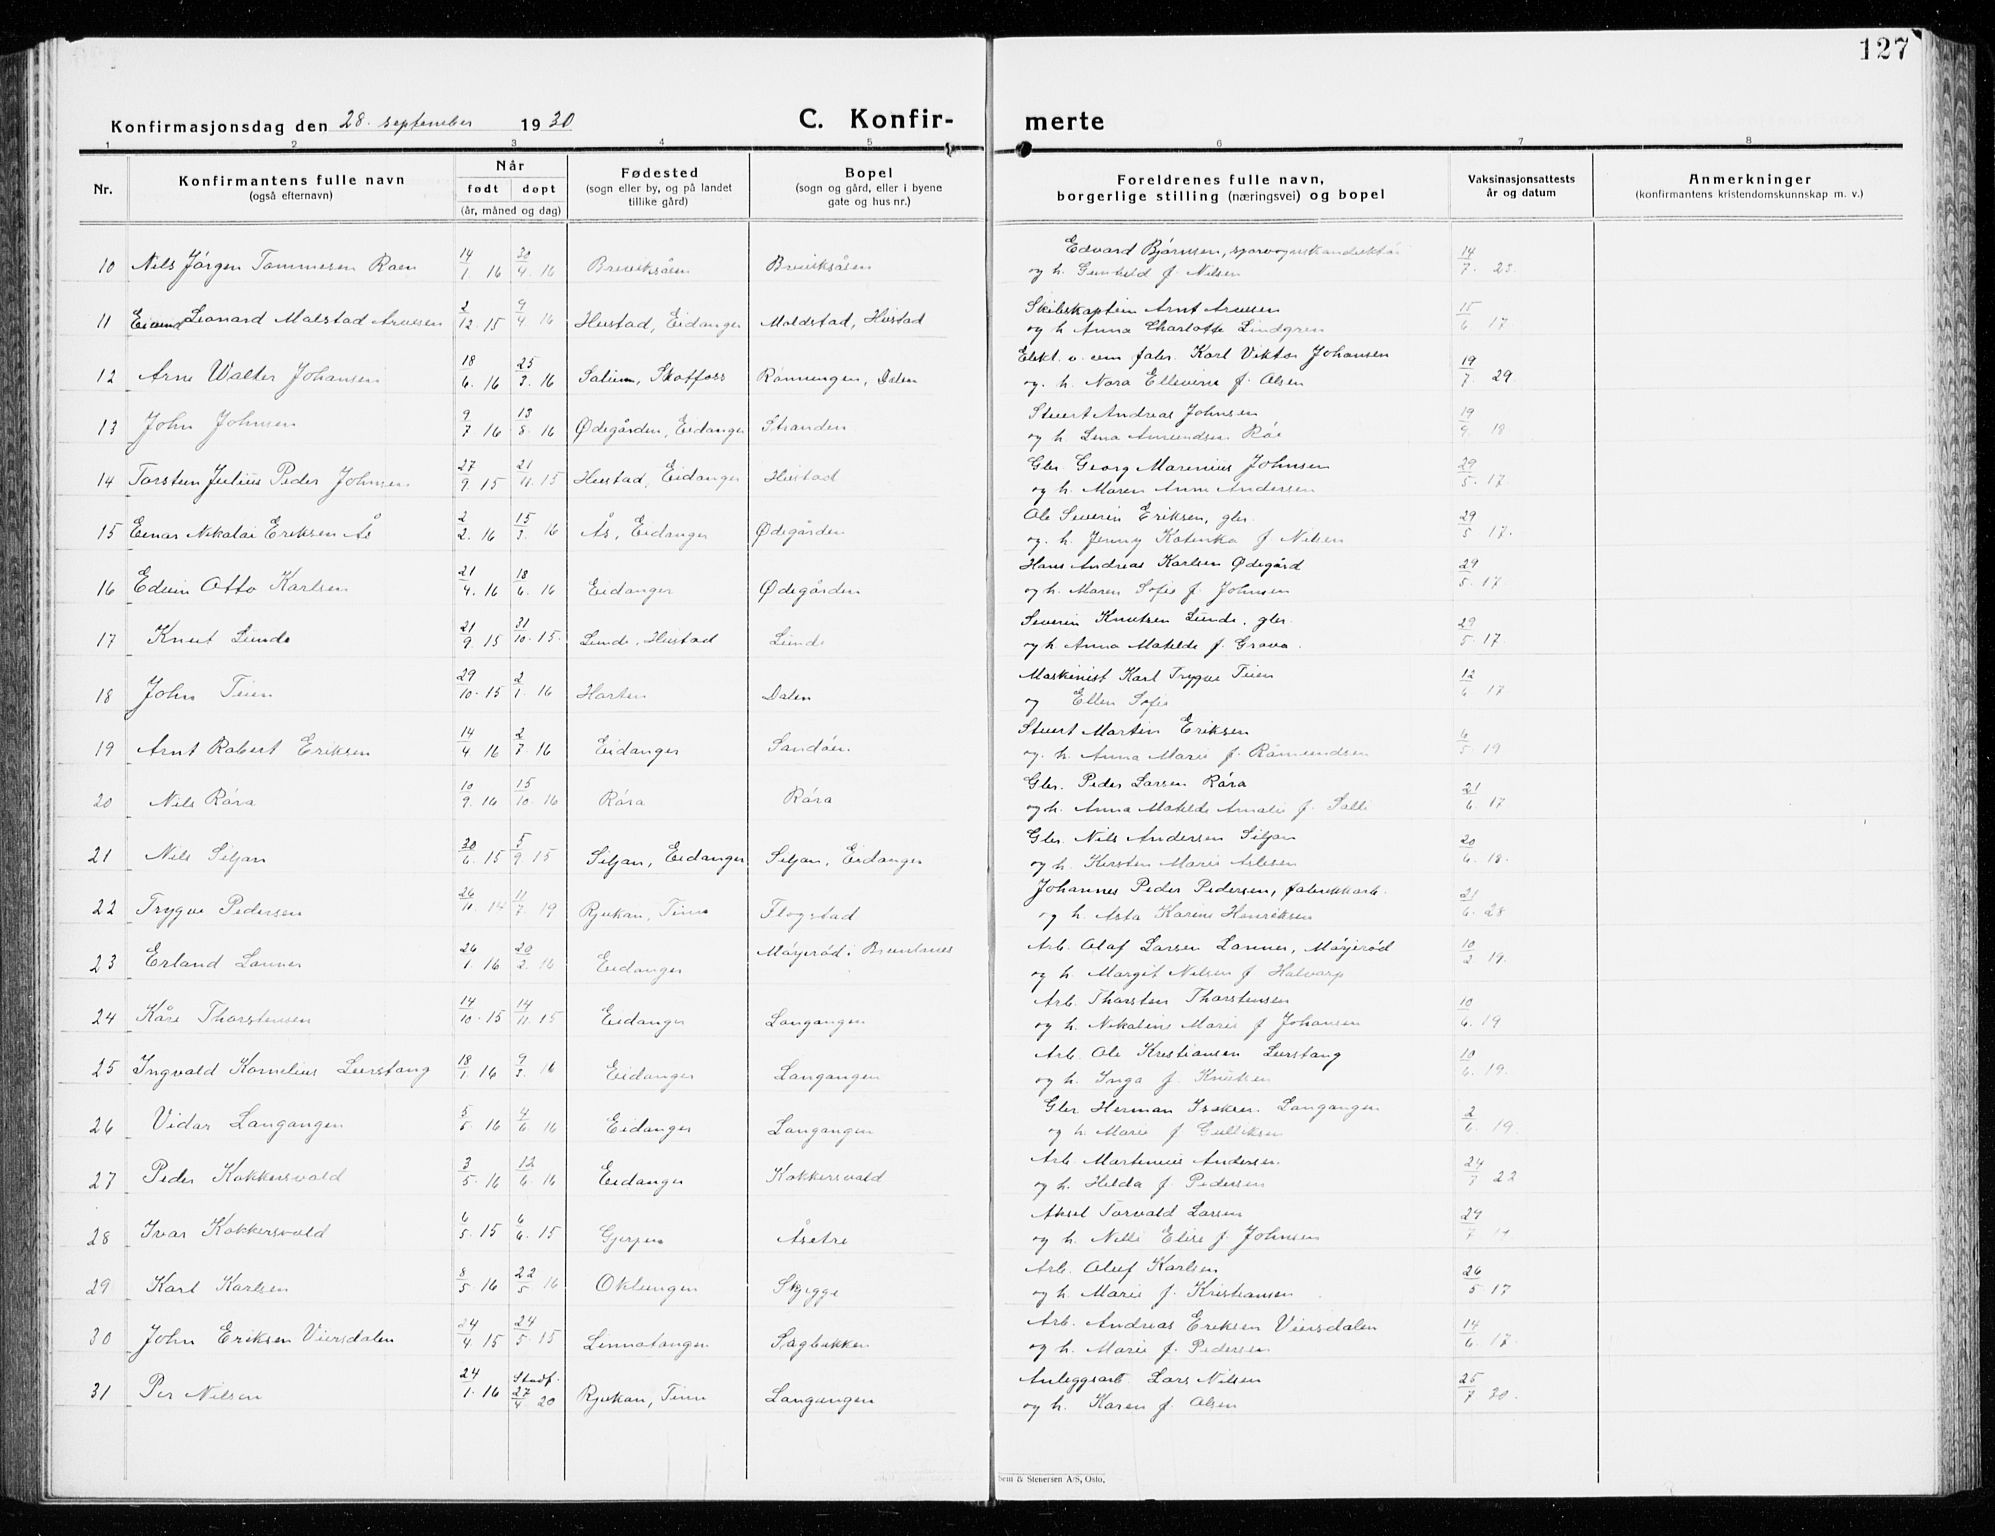 127
Konfirmasjonsdag den 28. september 1930
C. Konfir-
merte
1 2 3 4 5 6 7 8
Nr.
Konfirmantens fulle navn
(også efternavn)
Når
født døpt
(år, måned og dag)
Fødested
(sogn eller by, og på landet
tillike gård)
Bopel
(sogn og gård, eller i byene
gate og hus nr.)
Foreldrenes fulle navn,
borgerlige stilling (næringsvei) og bopel
Vaksinasjonsattests
år og datum
Anmerkninger
(konfirmantens kristendomskunnskap m. v.)
10 Nils Jörgen Tommesen Raen 14/1 16 30/4 16 Breviksåsen Breviksåsen Edvard Björnsen, 14/7. 23.
og h. Gunhild f. Nilsen
11 Eivind Leonard Malstad Arnesen 2/12. 15 9/4 16 Heistad, Eidanger Moldstad, Heistad Skibskaptein Arnt Arnesen 15/6 17
og h Anna Charlotte Lindgren
12 Arne Walter Johansen 18/6. 16 25/3. 16 Skotfoss Rönningen, Dalen Karl Viktor Johansen 19/7. 29.
og. h. Nora Ellevine f. Olsen
13 John Johnsen 9/7 16 13/8. 16 Ødegården, Eidanger Stranden Stuert Andreas Johnsen 19/9. 18
og h. Lena Amundsen
14 Torsten Julius Peder Johnsen 27/9. 15 21/11. 15 Heistad, Eidanger Heistad Gbr. Georg Marenius Johnsen 29/5. 17.
og h. Maren Anne Andersen
15 Einar Nikolai Eriksen Ås 2/2. 16 15/3. 16 Ås, Eidanger Ødegården Ole Severin Eriksen, gbr. 29/5 17.
og. h. Jenny Katinka f Nilsen
16 Edvin Otto Karlsen 21/4. 16 18/6. 16 Eidanger Ødegården Hans Andreas Karlsen Ødegård 29/5. 17
og h. Maren Sofie f. Johnsen
17 Knut Lunde 21/9. 15 31/10. 15. Lunde, Heistad Lunde Severin Knutsen Lunde, gbr. 29/5. 17
og h. Anna Matilde f. Grava.
18 John Teien 29/10. 15 2/1. 16 Horten Dalen Maskinist Karl Trygve Teien 12/6. 17
og Ellen Sofie
19 Arnt Robert Eriksen 14/4 16 2/7 16 Eidanger Sandöen Stuert Martin Eriksen 6/5. 19
og. h. Anna Marie f. Råmundsen
20 Nils Röra 10/9. 16 15/10. 16 Röra Röra Gbr. Peder Larsen Röra 21/6. 17
og h. Anna Matilde Amalie f.
21 Nils Siljan 30/6. 15 5/9. 15 Siljan, Eidanger Siljan, Eidanger Gbr. Nils Andersen Siljan 20/6. 18.
og h. Kirsten Marie
22 Trygve Pedersen 26/11. 14 11/7. 19 Rjukan, Tinn Flogstad Johannes Peder Pedersen, fabrikkarb. 21/6. 28
og h. Asta Karine Henriksen
23 Erland Lanner 26/1. 16 20/2. 16 Eidanger Möyeröd i Brunlanes Arb. Olaf Larsen Lanner, Möyeröd 10/2 19.
og h. Margit Nilsen f Halvarp
24 Kåre Thorstensen 14/10. 15 14/11. 15 Eidanger Langangen Arb. Thorsten Thorstensen 10/6. 19
og h. Nikoline Marie f Johansen
25 Ingvald Kornelius Leerstang 18/1. 16 9/3. 16 Eidanger Langangen Arb. Ole Kristiansen Leerstang 10/6. 19.
og h. Inga f. Knutsen
26 Vidar Langangen 5/5 16 4/6. 16 Eidanger Langangen Gbr Herman Isaksen. Langangen 2/6. 19.
og h. Marie f Gulliksen
27 Peder Kokkersvold 3/5. 16 12/6. 16 Eidanger Kokkersvold Arb. Martinius Andersen. 24/7 22
og h. Hilda f. Pedersen
28 Ivar Kokkersvold 6/5. 15 6/6. 15 Gjerpen Åsetre Aksel Torvald Larsen 24/7
og h. Nelli Elise f. Johnsen
29 Karl Karlsen 8/5. 16 22/5 16 Oklungen Skjegge Arb. Oluf Karlsen 26/5. 17
og h. Marie f. Kristiansen
30 John Eriksen Viersdalen 24/4 15 24/5. 15 Linnatangen Sagbakken Arb. Andreas Eriksen Viersdalen 14/6. 17.
og h. Marie f. Pedersen
31 Per Nilsen 24/1. 16 Stadf. 27/4 20 Rjukan, Tinn Langangen Anleggsarb. Lars Nilsen 25/7 30.
og h. Karen f. Olsen
Sem & Stenersen A/S, Oslo.